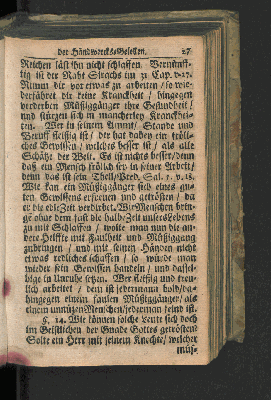 der Handwercks-Gesellen. 27
Reichen läst ihn nicht schlaffen. Vernünff-
tig ist der Raht Sirachs im 31 Cap. v. 27.
Nimm dir vor etwas zu arbeiten / so wie-
derfähret dir keine Kranckheit / hingegen
verderben Müßiggänger ihre Gesundheit /
und stürtzen sich in mancherley Kranckhei-
ten. Wer in seinem Ammt / Stande und
Beruff fleißig ist / der hat dabey ein fröli-
ches Gewissen / welches besser ist / als alle
Schätze der Welt. Es ist nichts besser / denn
daß ein Mensch frölich sey in seiner Arbeit /
denn das ist sein Theil / Pred. Sal.
Wie kan ein Müßiggänger sich eines gu-
ten Gewissens erfreuen und getrösten / da
er die edle Zeit verdirbet. Wir Menschen brin-
ge ohne dem fast die halbe Zeit unsers Lebens
zu mit Schlaffen / wolte man nun die an-
dere Helffte mit Faulheit und Müßiggang
zubringen / und mit seinen Händen nicht
etwas redliches schaffen / so würde man
wieder sein Gewissen handeln / und dassel-
bige in Unruhe setzen. Wer fleißig und treu-
lich arbeitet / dem ist jedermann hold / da-
hingegen einem faulen Müßiggänger / als
einem unnützen Menschen / jederman feind ist.
§. 14. Wie können solche Leute sich doch
im Geistlichen der Gnade Gottes getrösten?
Solte ein Herr mit seinem Knechte / welcher
müs-